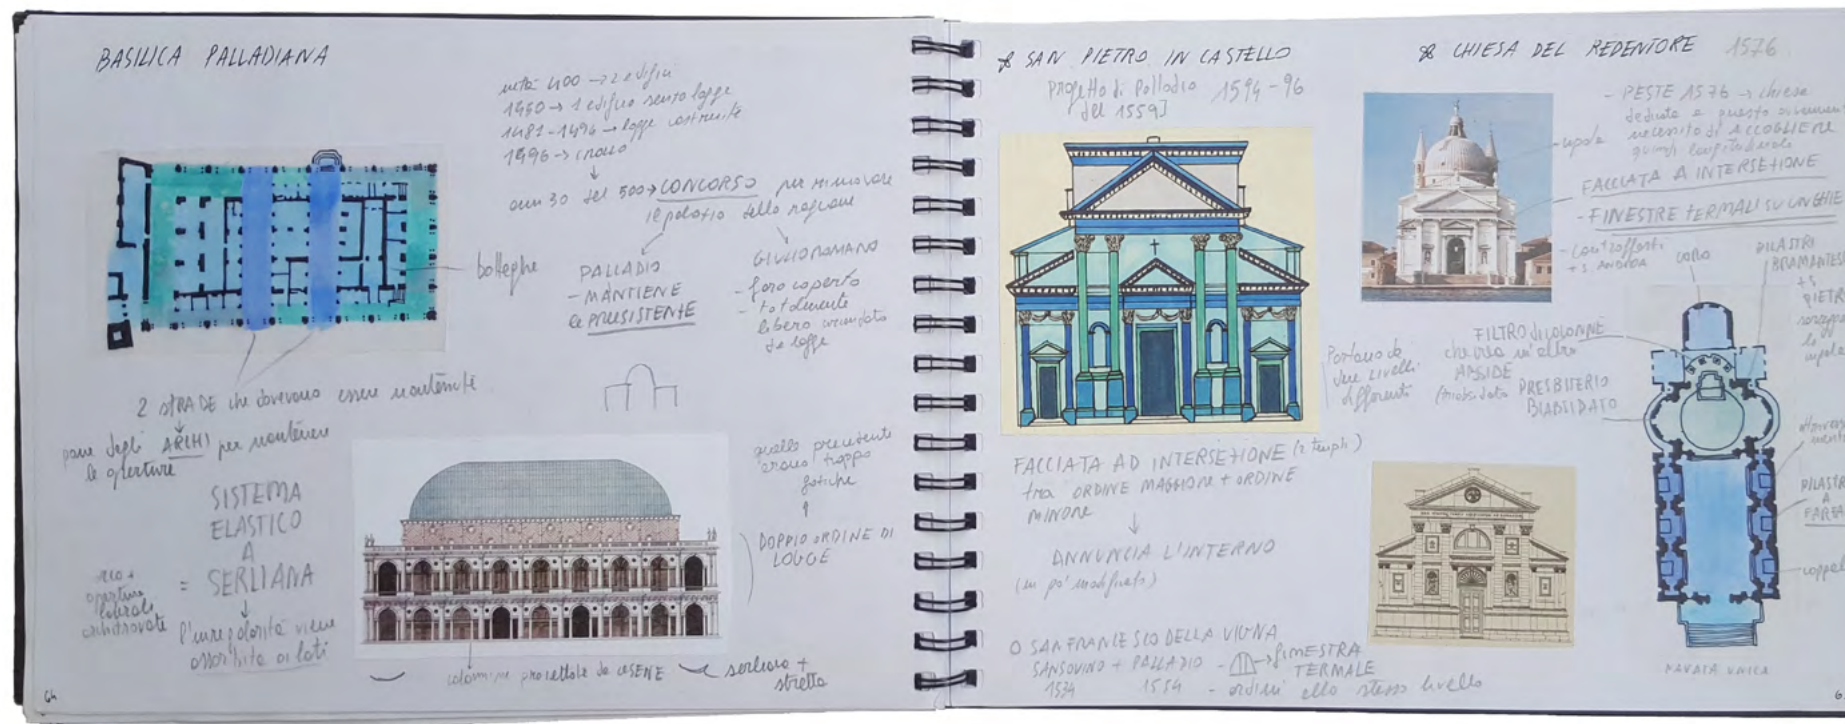 BASILICA PALLADIANA
metà 400 → 2 edifici
1450 → 1 edificio senza logge
1481-1496 → logge costruite
1496 → crollo
anni 30 del 500 → CONCORSO per rinnovare
il palazzo della ragione
PALLADIO
- MANTIENE
le PREESISTENTE
GIULIO ROMANO
- foro coperto
- totalmente
libero circondato
da logge
botteghe
2 STRADE che dovevano essere mantenute
pone degli ARCHI per mantenere
le aperture
SISTEMA
ELASTICO
A
= SERLIANA
arco +
aperture
laterali
architravate
l'irregolarità viene
assorbita ai lati
quelle precedenti
erano troppo
gotiche
DOPPIO ORDINE DI
LOGGE
colonnine proiettate da LESENE
serliana +
stretta
64
SAN PIETRO IN CASTELLO
progetto di Palladio 1594-96
del 1559]
Portano da
due livelli
differenti
FACCIATA AD INTERSEZIONE (2 templi)
tra ORDINE MAGGIORE + ORDINE
MINORE
ANNUNCIA L'INTERNO
(un po' modificato)
O SAN FRANCESCO DELLA VIGNA
SANSOVINO + PALLADIO - → FINESTRA
TERMALE
1534 1554 - ordini allo stesso livello
CHIESA DEL REDENTORE 1576
- PESTE 1576 → chiesa
dedicata a questo
necessità di ACCOGLIERE
quindi longitudinale
cupola
FACCIATA A INTERSEZIONE
- FINESTRE TERMALI SU UNGHIE
- contrafforti
+ S. ANDREA
CORO
PILASTRI
BRAMANTESCHI
+ S.
PIETRO
la
cupola
FILTRO di COLONNE
che crea un'altra
ABSIDE
PRESBITERIO
BIABSIDATO
PILASTRI
A
PARETE
NAVATA UNICA